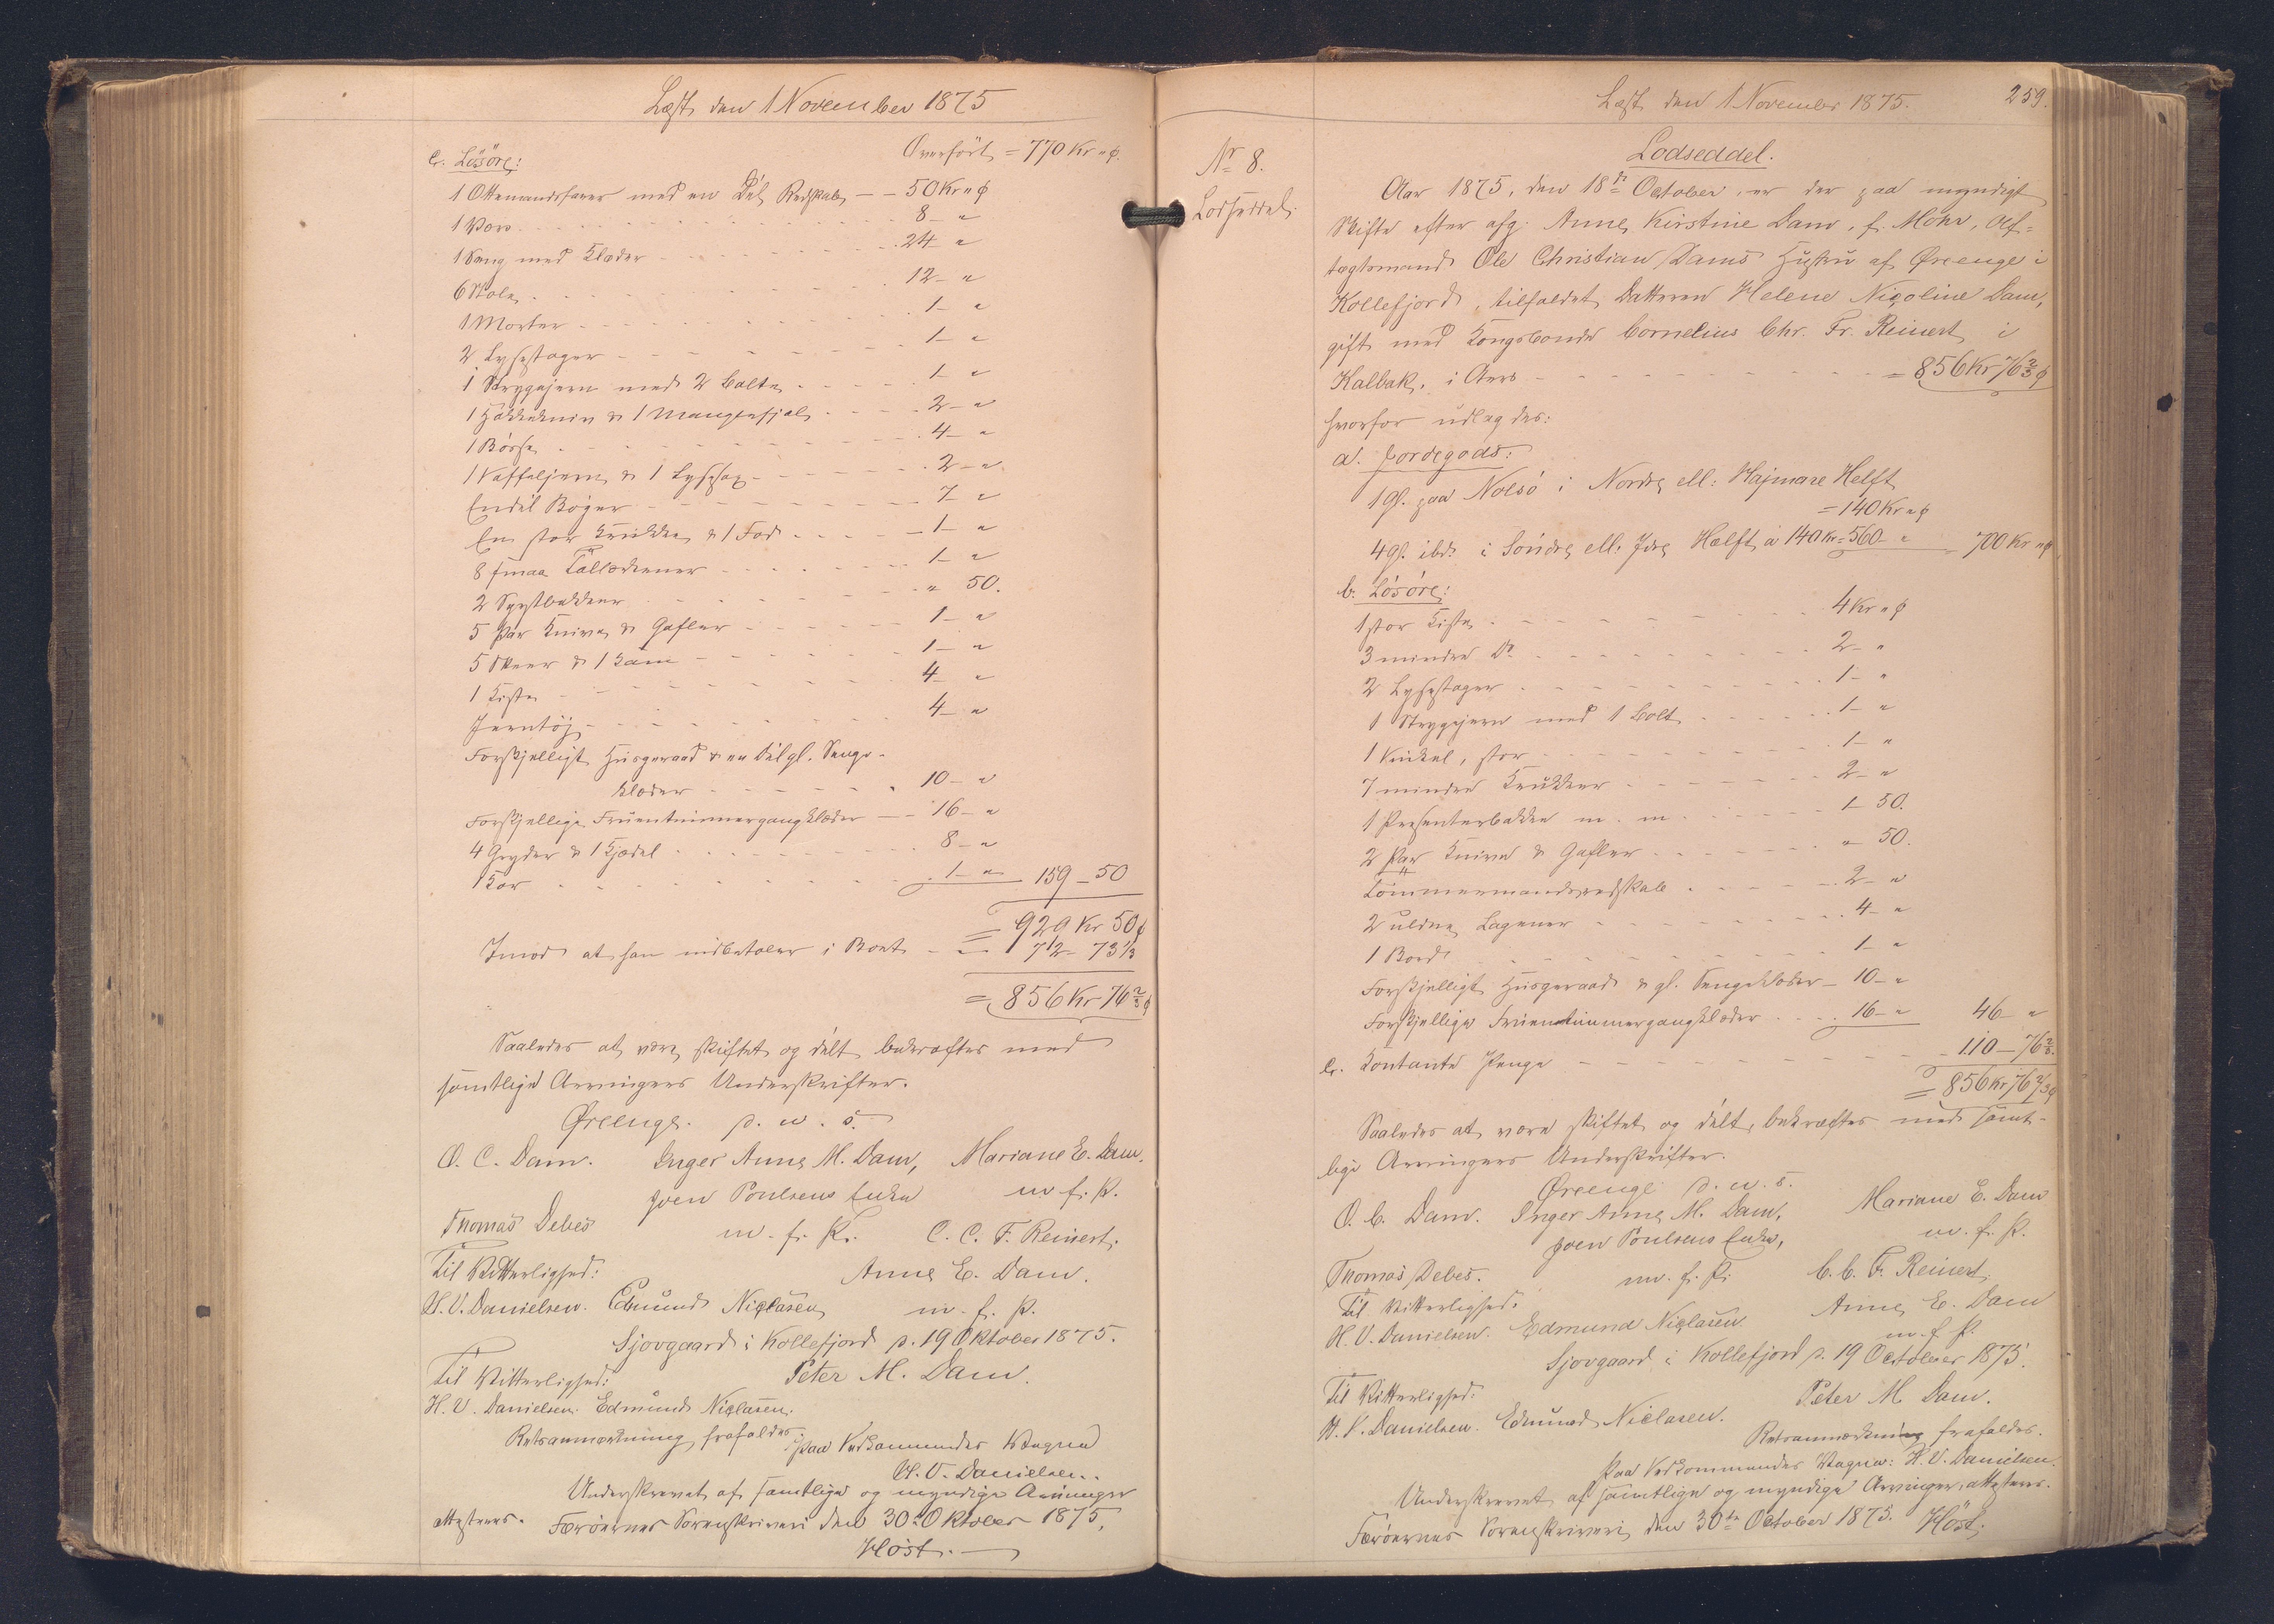 Læst den 1 November 1875
Overført = 770 Kr " ø.
c. Løsøre:
1 Ottemandsfarer med en Del Redskab — 50 Kr " ø
1 Vove 8 — "
1 Seng med Klæder 24 — "
6 Stole 12 — "
1 Morter 1 — "
2 Lysestager 1 — "
1 Strygejern med 2 Bolte 1 — "
1 Hakkekniv & 1 Mangefjæl 2 — "
1 Bøsse 4 — "
1 Vaffeljern & 1 Lysesax 2 — "
Endel Bøger 7 — "
En stor Krukke & 1 Fad 1 — "
8 smaa Tallerkener 1 — "
2 " 50.
5 Par Knive & Gafler 1 — "
5 Skeer & 1 1 — "
1 Kiste 4 — "
Jerntøj 4 — "
Forskjelligt Husgeraad & en Del gl. Senge-
klæder 10 — "
Forskjellige Fruentimmergangklæder — 16 — "
4 Gryder & 1 Kjedel 8 — "
1 Kar 1 — " 159 — 50
= 929 Kr 50 ø
Imod at han indbetaler i Boet — 72 — 73 1/3
= 856 Kr 76 2/3 ø
Saaledes at være skiftet og delt bekræftes med
samtlige Arvingers Underskrifter.
Øreenge. d. u. s.
O. C. Dam. Inger Anne M. Dam, Mariane E. Dam.
Joen Poulsens Enke m. f. P.
Thomas Debes m. f. P. C. C. F. Reinert.
Til Vitterlighed: Anne E. Dam.
H. V. Danielsen. Edmund Niclasen m. f. P.
Sjovgaard i Kollefjord d. 19 Oktober 1875.
Til Vitterlighed: Peter M. Dam.
H. V. Danielsen. Edmund Niclasen.
Retsanmærkning frafaldes.
Paa Vedkommendes Vegne
H. V. Danielsen.
Underskrevet af samtlige og myndige Arvinger
attesteres. Færøernes Sorenskriveri den 30te Oktober 1875,
Høst.
Læst den 1 November 1875. 259.
No 8.
Lodseddel.
Lodseddel.
Aar 1875, den 18de October, er der paa myndigt
Skifte efter afg. Anne Kirstine Dam, f. Mohr, Af-
tægtsmand Ole Christian Dams Hustru af Øreenge i
Kollefjord, tilfaldet Datteren Helene Nicoline Dam,
gift med Kongsbonde Cornelius Chr. Fr. Reinert i
Kalbak, i Arv = 856 Kr 76 2/3 ø
hvorfor udlagdes:
a. Jordegods:
1 Gl. paa Nolsø i Nordre ell: Hajmare Helft
= 140 Kr " ø
4 Gl. ibd. i Søndre ell. Idre Hælft à 140 Kr = 560 — " 700 Kr " ø
b. Løsøre:
1 stor Kiste 4 Kr " ø
3 mindre Do 2 — "
2 Lysestager 1 — "
1 Strygejern med 1 Bolt 1 — "
1 stor 1 — "
7 mindre Krukker 2 — "
1 Presenterbakke m. m. 1 — 50.
2 Par Knive & Gafler " — 50.
Tømmermandsredskab 2 — "
2 uldne Lagener 4 — "
1 Bord 1 — "
Forskjelligt Husgeraad & gl. Sengeklæder — 10 — "
Forskjellige Fruentimmergangklæder 16 — " 46 — "
c. Kontante Penge 110 — 76 2/3.
= 856 Kr 76 2/3 ø
Saaledes at være skiftet og delt, bekræftes med samt-
lige Arvingers Underskrifter.
Øreenge d. u. s.
O. C. Dam. Inger Anne M. Dam, Mariane E. Dam
Joen Poulsens Enke, m. f. P.
Thomas Debes. m. f. P. C. C. F. Reinert.
Til Vitterlighed: Anne E. Dam
H. V. Danielsen. Edmund Niclasen. m. f. P.
Sjovgaard i Kollefjord d. 19 October 1875.
Til Vitterlighed: Peter M. Dam.
H. V. Danielsen. Edmund Niclasen.
Retsanmærkning frafaldes.
Paa Vedkommendes Vegne: H. V. Danielsen.
Underskrevet af samtlige og myndige Arvinger, attesteres.
Færøernes Sorenskriveri, den 30te October 1875. Høst.